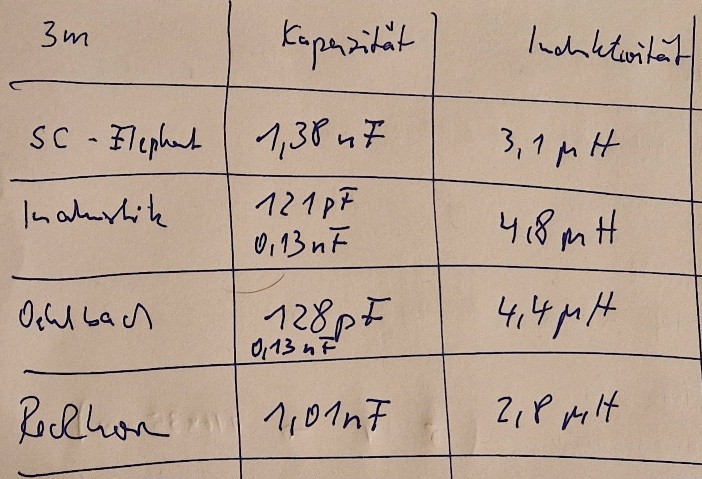 3m Kapazität Induktivität
SC - Elephant 1,38 nF 3,1 µH
Inakustik 121 pF 4,8 µH
0,13 nF
Oehlbach 128 pF 4,4 µH
0,13 nF
Reckhorn 1,01 nF 2,8 µH